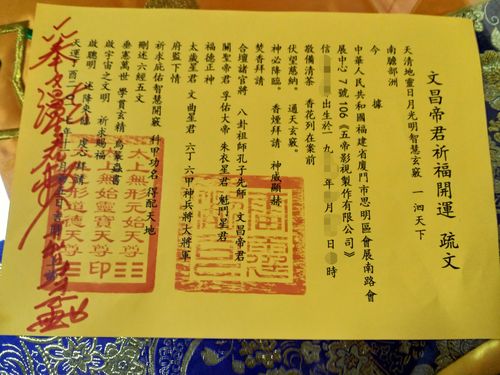 文昌帝君祈福開運 疏文
天清地靈日月光明智慧玄竅 一泗天下
南贍部洲
今 據
中華人民共和國福建省廈門市思明區會展南路會
展中心7號106《五帝影視製作有限公司》
信 出生於一九 年 月 日 時
敬備清茶 香花列在案前
伏望慈納。 通天玄竅。
神必降臨。 香煙拜請 神威顯赫
焚香拜請
合壇諸官將 八卦祖師孔子先師 文昌帝君
關聖帝君 孚佑大帝 朱衣星君 魁鬥星君
福德正神
太歲星君 文曲星君 六丁六甲神兵將大將軍
府監下情
祈求庇佑智慧開竅 科甲功名得配天地
刪述六經五文
垂憲萬世 學貫玄精
啟宇宙之文明 祈求賜福
啟聰明 述降來臨
天運
太上無形元始天尊
無始靈寶天尊
形道德天尊印